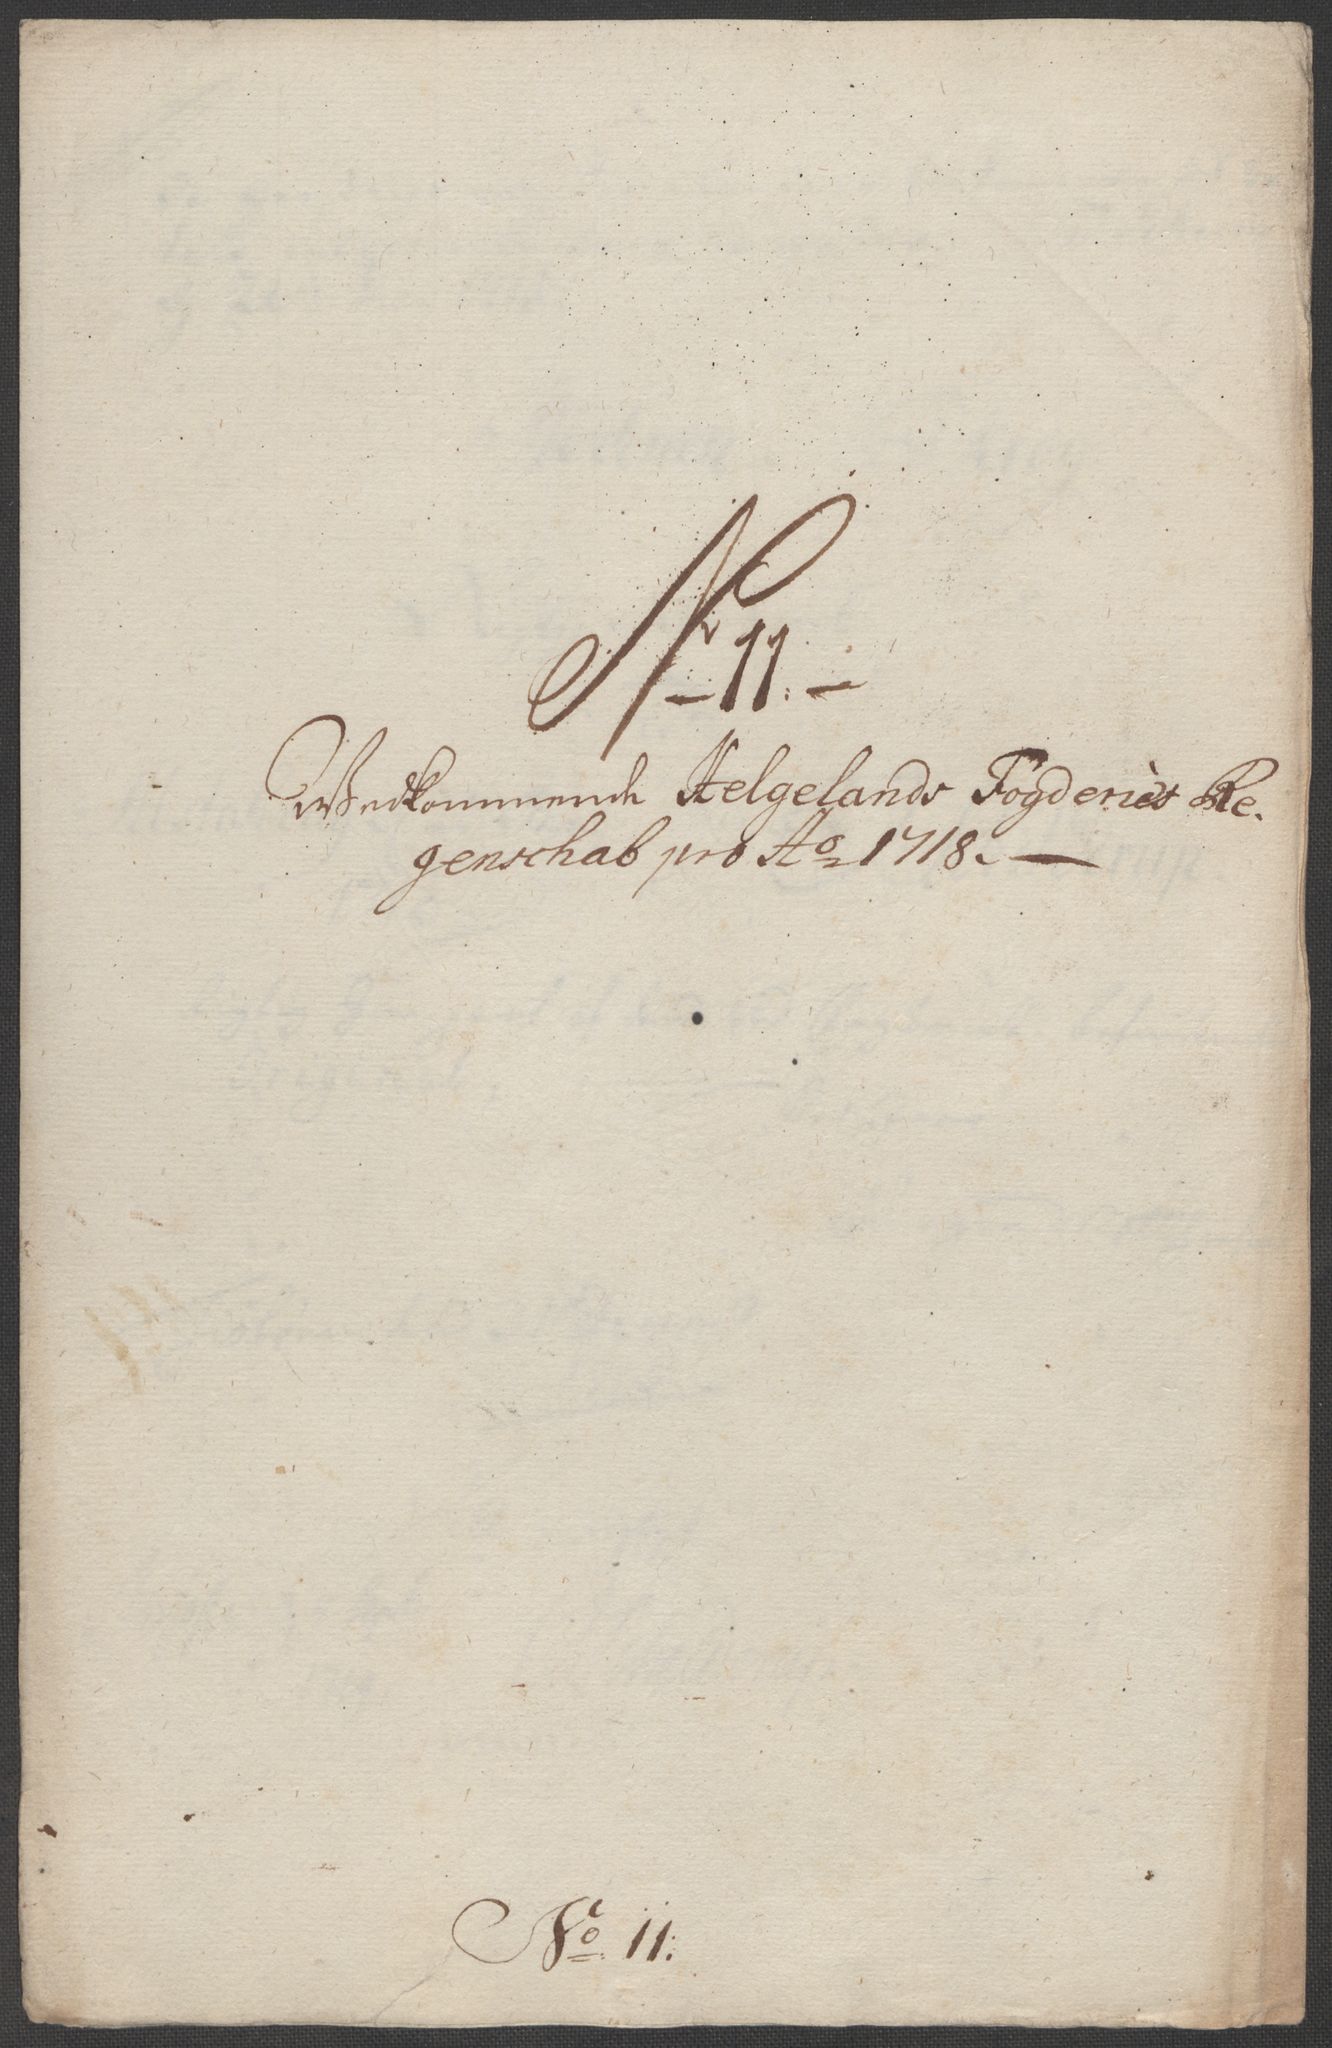 N 11.
Wedkommende Helgelands Fogderies Re-
genschab pro Ao 1718.
No 11: